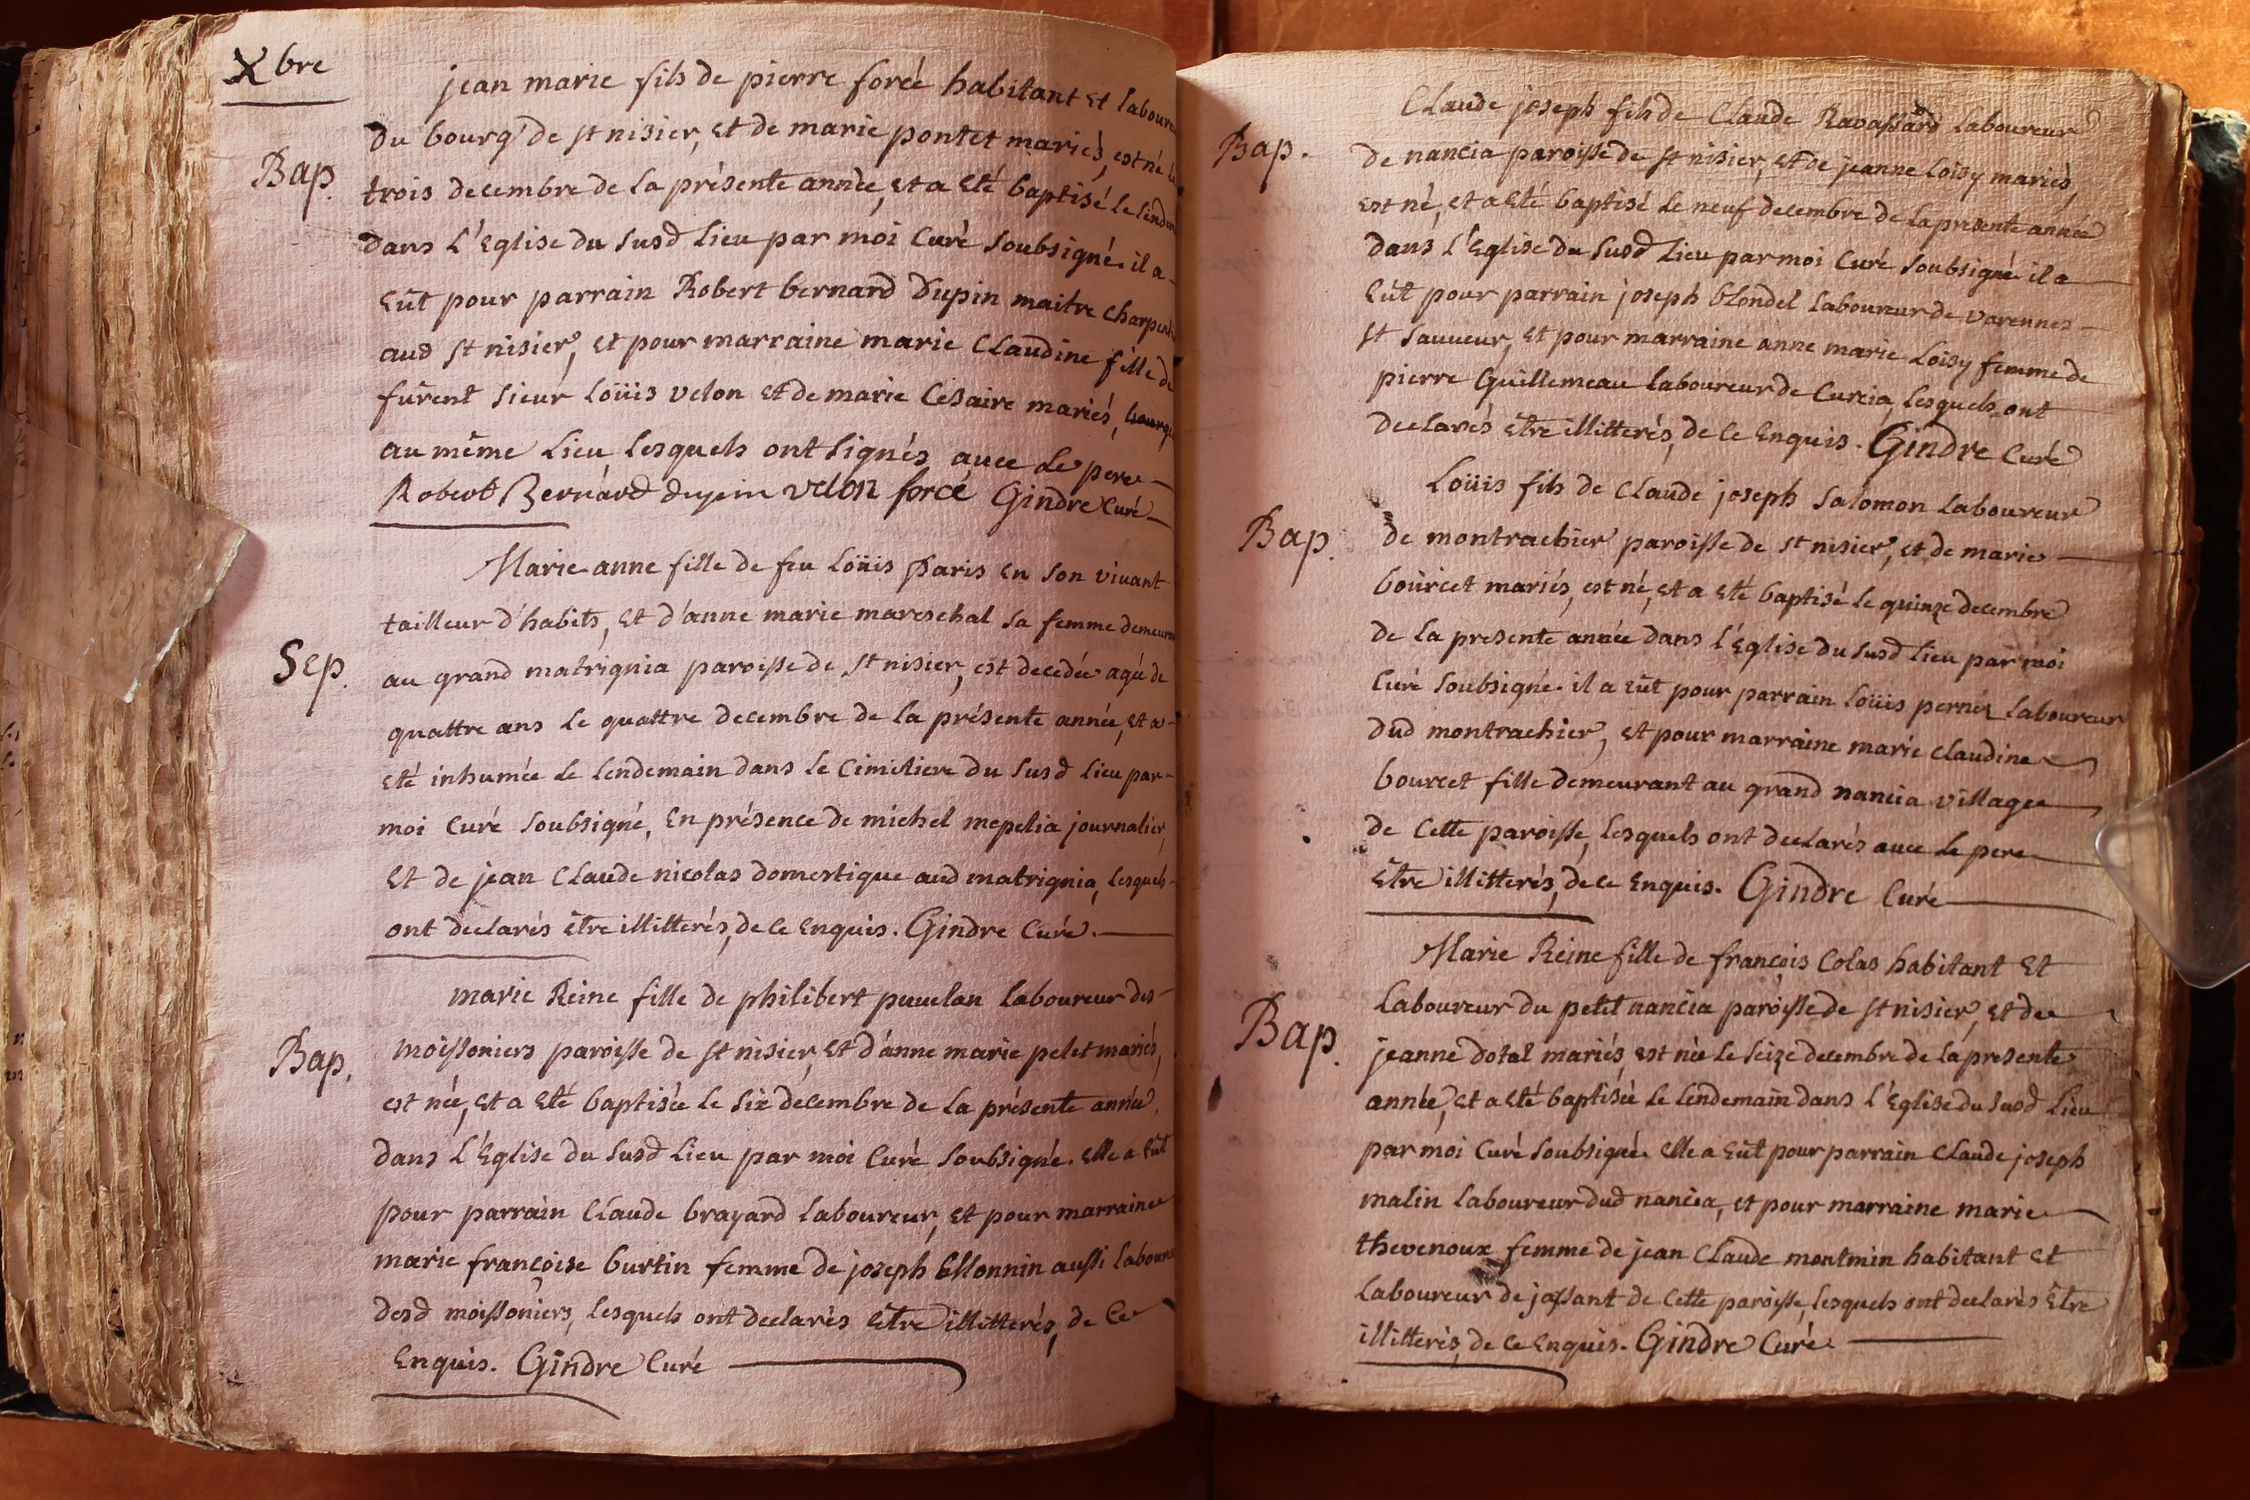 Xbre
jean marie fils de pierre forcé habitant et laboure
Du bourg de st nisier, et de marie pontet mariés, est né le
Bap.
trois decembre de la présente année, et a eté baptisé le lendem
dans l'Eglise du susd lieu par moi Curé soubsigné. il a
eût pour parrain Robert bernard Dupin maitre charpent
aud st nisier, et pour marraine marie Claudine fille de
furent sieur Loüis velon et de marie Cesaire mariés, bourge
au même lieu lesquels ont signés avec le pere
Robert Bernard dupin velon forcé Gindre Curé
Marie anne fille de feu Loüis Paris en son vivant
tailleur d'habits, et d'anne marie mareschal sa femme demeura
Sep.
au grand matrignia paroisse de st nisier, est decedée agé de
quattre ans le quattre decembre de la présente année, et a
eté inhumée le lendemain dans le Cimitiere du susd lieu par
moi Curé soubsigné, en présence de michel mepelia journalier,
et de jean Claude nicolas domestique aud matrignia, lesquels
ont declarés être illitterés, de ce enquis. Gindre Curé.
marie Reine fille de philibert puvelan laboureur des
Bap.
moissoniers paroisse de st nisier, et d'anne marie pelet mariés,
est née, et a eté baptisée le six decembre de la présente année
dans l'Eglise du susd lieu par moi Curé soubsigné. elle a eût
pour parrain Claude brayard laboureur, et pour marraine
marie françoise burtin femme de joseph Monnin aussi laboure
desd moissoniers, lesquels ont declarés être illitterés, de ce
enquis. Gindre Curé
Claude joseph fils de Claude Ravassard laboureur
Bap.
de nancia paroisse de st nisier, et de jeanne Loisy mariés,
est né, et a eté baptisé le neuf decembre de la presente année
dans l'Eglise du susd lieu par moi Curé soubsigné. il a
eût pour parrain joseph blondel laboureur de varennes
st sauveur, et pour marraine anne marie Loisy femme de
pierre Guillemeau laboureur de Curcia, lesquels ont
declarés être illitterés, de ce enquis. Gindre Curé
Loüis fils de Claude joseph salomon laboureur
Bap.
de montrachier paroisse de st nisier, et de marie
bourcet mariés, est né, et a eté baptisé le quinze decembre
de la presente année dans l'Eglise du susd lieu par moi
Curé soubsigné. il a eût pour parrain Loüis pernér laboureur
dud montrachier, et pour marraine marie claudine
bourcet fille demeurant au grand nancia village
de cette paroisse, lesquels ont declarés avec le pere
être illitterés, de ce enquis. Gindre Curé
Marie Reine fille de françois Colas habitant et
Bap.
Laboureur du petit nancia paroisse de st nisier, et de
jeanne Dotal mariés, est née le seize decembre de la presente
année, et a eté baptisée le lendemain dans l'Eglise du susd lieu
par moi Curé soubsigné. elle a eût pour parrain Claude joseph
malin laboureur dud nancia, et pour marraine marie
thevenoux femme de jean Claude montmin habitant et
laboureur de jassant de cette paroisse, lesquels ont declarés être
illitterés, de ce enquis. Gindre Curé